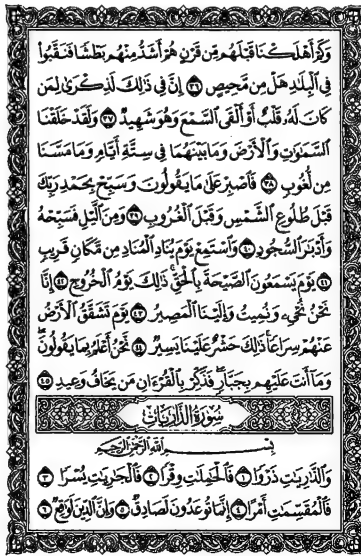 وَكَمْ أَهْلَكْنَا قَبْلَهُم مِّن قَرْنٍ هُمْ أَشَدُّ مِنْهُم بَطْشًا فَنَقَّبُوا
فِي الْبِلَٰدِ هَلْ مِن مَّحِيصٍ ٣٦ إِنَّ فِي ذَٰلِكَ لَذِكْرَىٰ لِمَن
كَانَ لَهُ قَلْبٌ أَوْ أَلْقَى السَّمْعَ وَهُوَ شَهِيدٌ ٣٧ وَلَقَدْ خَلَقْنَا
السَّمَٰوَٰتِ وَالْأَرْضَ وَمَا بَيْنَهُمَا فِي سِتَّةِ أَيَّامٍ وَمَا مَسَّنَا
مِن لُّغُوبٍ ٣٨ فَاصْبِرْ عَلَىٰ مَا يَقُولُونَ وَسَبِّحْ بِحَمْدِ رَبِّكَ
قَبْلَ طُلُوعِ الشَّمْسِ وَقَبْلَ الْغُرُوبِ ٣٩ وَمِنَ اللَّيْلِ فَسَبِّحْهُ
وَأَدْبَٰرَ السُّجُودِ ٤٠ وَاسْتَمِعْ يَوْمَ يُنَادِ الْمُنَادِ مِن مَّكَانٍ قَرِيبٍ
٤١ يَوْمَ يَسْمَعُونَ الصَّيْحَةَ بِالْحَقِّ ذَٰلِكَ يَوْمُ الْخُرُوجِ ٤٢ إِنَّا
نَحْنُ نُحْيِ وَنُمِيتُ وَإِلَيْنَا الْمَصِيرُ ٤٣ يَوْمَ تَشَقَّقُ الْأَرْضُ
عَنْهُمْ سِرَاعًا ذَٰلِكَ حَشْرٌ عَلَيْنَا يَسِيرٌ ٤٤ نَّحْنُ أَعْلَمُ بِمَا يَقُولُونَ
وَمَا أَنتَ عَلَيْهِم بِجَبَّارٍ فَذَكِّرْ بِالْقُرْءَانِ مَن يَخَافُ وَعِيدِ ٤٥
سُورَةُ الذَّارِيَاتِ
بِسْمِ اللَّهِ الرَّحْمَٰنِ الرَّحِيمِ
وَالذَّٰرِيَٰتِ ذَرْوًا ١ فَالْحَٰمِلَٰتِ وِقْرًا ٢ فَالْجَٰرِيَٰتِ يُسْرًا ٣
فَالْمُقَسِّمَٰتِ أَمْرًا ٤ إِنَّمَا تُوعَدُونَ لَصَادِقٌ ٥ وَإِنَّ الدِّينَ لَوَٰقِعٌ ٦